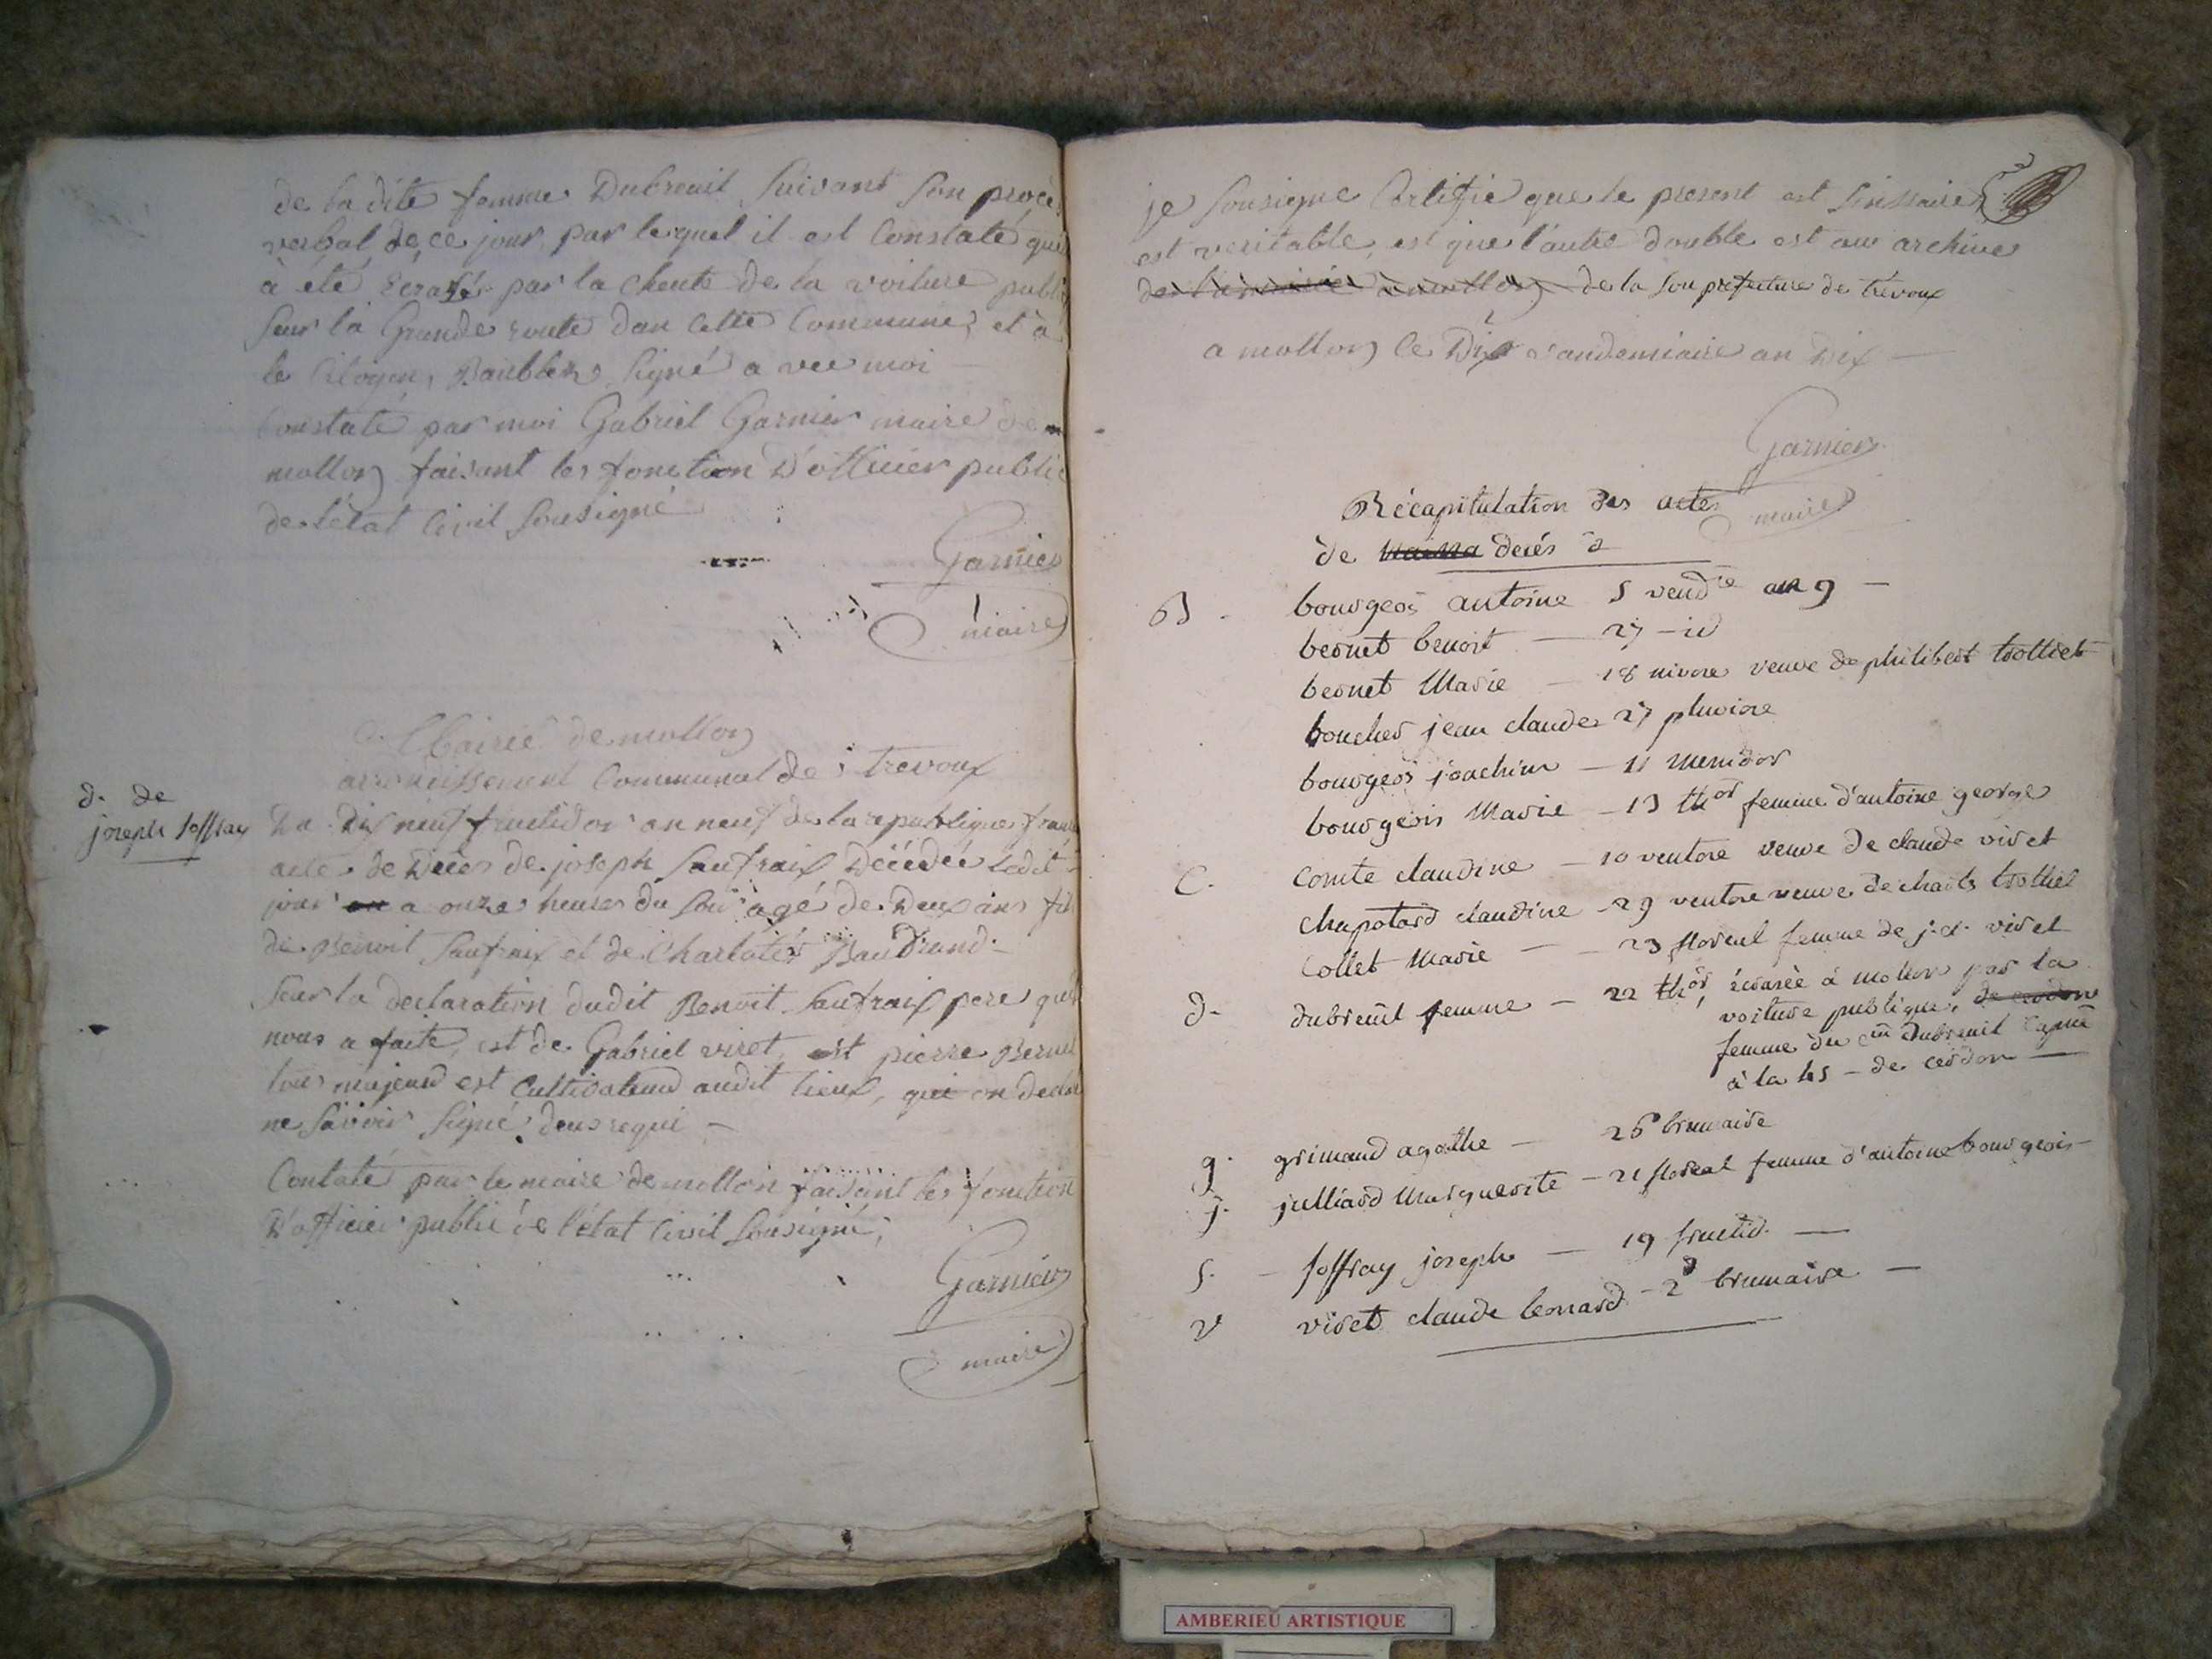 de la dite femme Dubreuil Suivant Son procés
verbal de ce jour, par lequel il est Constaté qu'el
à été Ecrasé par la cheute de la voiture publi
Sur la Grande route dan Cette Commune, et à
le Citoyen, Signé a vec moi
Constaté par moi Gabriel Garnier maire de
mollon faisant les fonction D'officier public
de l'état Civil Sousigné
Garnier
maire
Mairie de mollon
arrondissement Communal de Trevoux
d. de
joseph soffray
Du Dix neuf fructidor an neuf de la republique franc
acte de Décés de joseph Saufraix Décédée ledit
jour a onze heures du Soir agé de Deux ans fil
de Benoit Saufraix et de Baudrand
Sur la declaration dudit Benoit Saufraix pere qui
nous a faite, est de Gabriel viret, est pierre Bernet
tous majeurs est Cultivateurs audit lieux, qui on declar
ne Savoir Signé deux requi
Contaté par le maire de mollon faisant les fonction
D'officier public de l'état Civil Sousigné,
Garnier
maire
je Sousigne Certifie que le present est
est veritable, est que l'autre double est aux archives
de la Sou prefecture de trévoux
a mollon le Dix vandemiaire an Dix
Garnier
maire
Récapitulation des actes
de decés
B. bourgeois antoine 5 vend.re an 9
bernet benoit — 27 — id
bernet Marie — 18 nivose veuve de philibert trolliet
boucher jean claude 27 pluviose
bourgeois joachim — 11 Messidor
bourgeois Marie — 13 th.or femme d'antoine george
C. Comte claudine — 10 ventose veuve de claude viret
chapotard claudine 29 ventose veuve de charls trolliet
Collet Marie — 23 floreal femme de j. cl. viret
d. dubreuil femme — 22 th.or, écrasée à mollon par la
voiture publique, de cerdon
femme du c.en dubreuil capne
à la 65 - de cerdon —
g. grimaud agathe — 26 brumaire
j. julliard Marguerite — 21 floreal femme d'antoine bourgeois
S. — soffray joseph — 19 fructid. —
V viret claude leonard — 2 brumaire —
AMBERIEU ARTISTIQUE